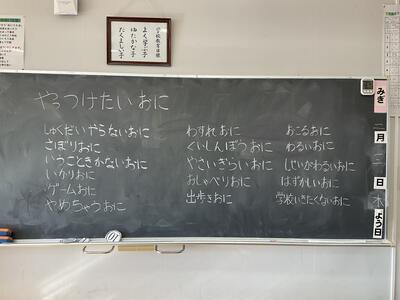 小学校教育目標
よく学ぶ子
ゆたかな子
たくましい子
やっつけたいおに
しゅくだいやらないおに
さぼりおに
いうこときかないおに
いかりおに
ゲームおに
やめちゃうおに
わすれおに
くいしんぼうおに
やさいぎらいおに
おしゃべりおに
出歩きおに
おこるおに
わるいおに
しじいがわるいおに
はずかしいおに
学校いきたくないおに
みぎ
月
日
木
よう日